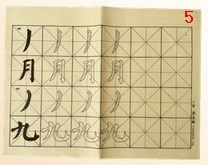 5
丿 丿 丿 丿
月 月 月 月
丿 丿 丿 丿
九 九 九 九